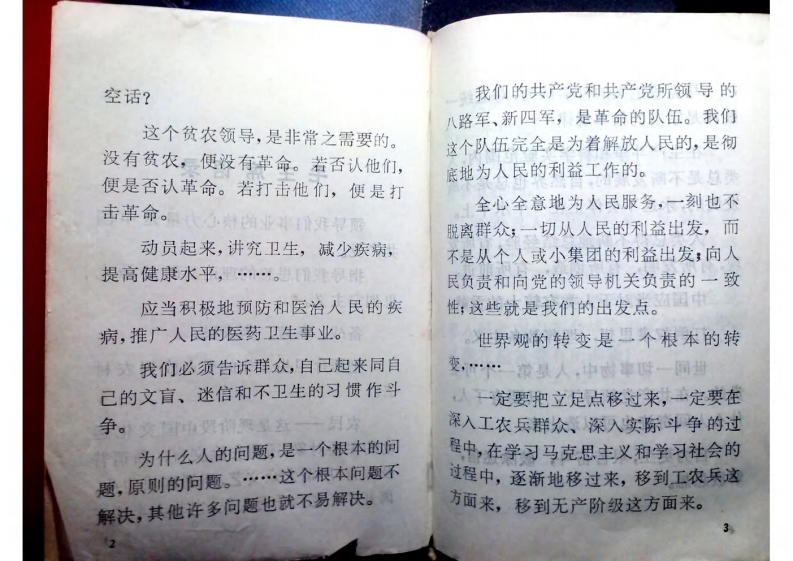 空话？
这个贫农领导，是非常之需要的。
没有贫农，便没有革命。若否认他们，
便是否认革命。若打击他们，便是打
击革命。
动员起来，讲究卫生，减少疾病，
提高健康水平，……。
应当积极地预防和医治人民的疾
病，推广人民的医药卫生事业。
我们必须告诉群众，自己起来同自
己的文盲、迷信和不卫生的习惯作斗
争。
为什么人的问题，是一个根本的问
题，原则的问题。……这个根本问题不
解决，其他许多问题也就不易解决。
2
我们的共产党和共产党所领导的
八路军、新四军，是革命的队伍。我们
这个队伍完全是为着解放人民的，是彻
底地为人民的利益工作的。
全心全意地为人民服务，一刻也不
脱离群众；一切从人民的利益出发，而
不是从个人或小集团的利益出发；向人
民负责和向党的领导机关负责的一致
性；这些就是我们的出发点。
世界观的转变是一个根本的转
变，……
一定要把立足点移过来，一定要在
深入工农兵群众、深入实际斗争的过
程中，在学习马克思主义和学习社会的
过程中，逐渐地移过来，移到工农兵这
方面来，移到无产阶级这方面来。
3